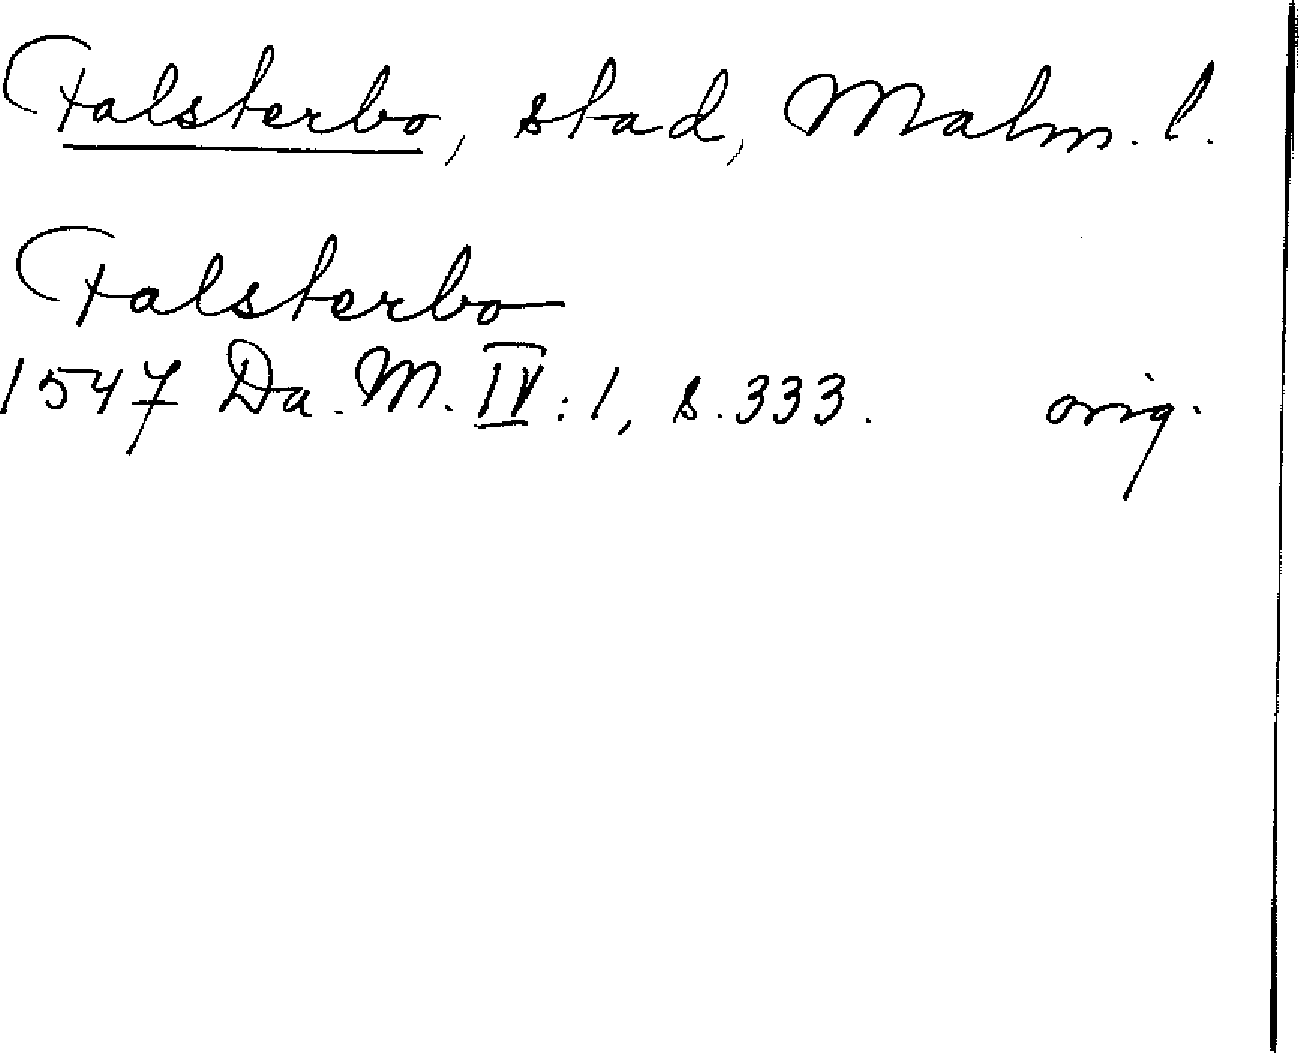 Falsterbo, stad, Malm. l.
Falsterbo
1547 Da. M. IV:1, s. 333. orig.